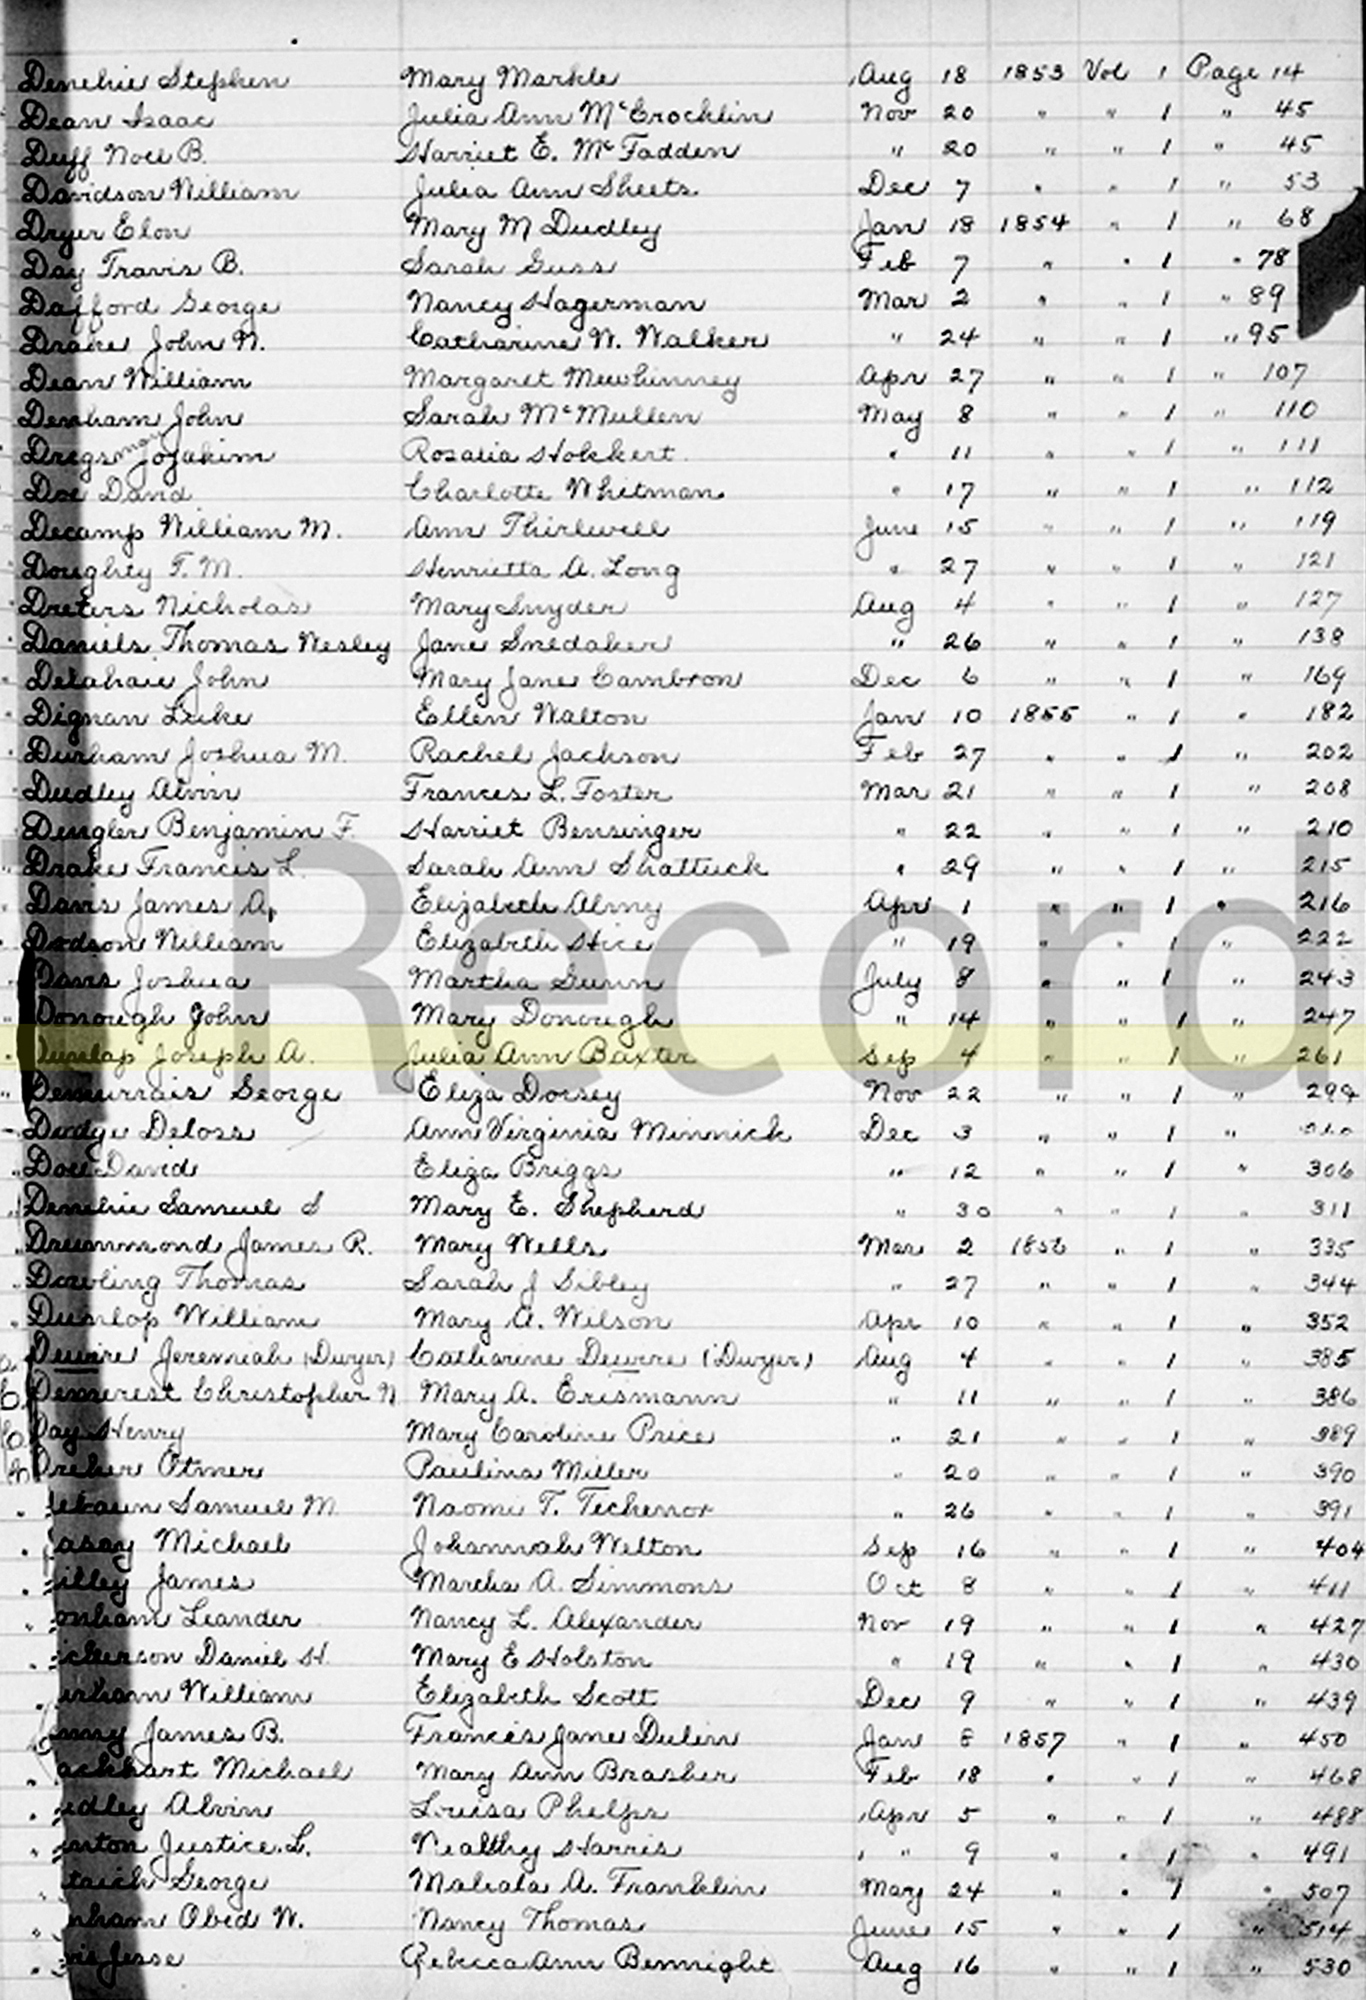 Denehie Stephen Mary Markle Aug 18 1853 Vol 1 Page 14
Dean Isaac Julia Ann McCrocklin Nov 20 " " 1 " 45
Duff Noel B. Harriet E. McFadden " 20 " " 1 " 45
Davidson William Julia Ann Sheets Dec 7 " " 1 " 53
Dryer Elon Mary M Dudley Jan 18 1854 " 1 " 68
Day Travis B. Sarah Guss Feb 7 " " 1 " 78
Dafford George Nancy Hagerman Mar 2 " " 1 " 89
Drake John W. Catharine W. Walker " 24 " " 1 " 95
Dean William Margaret Mewhinney Apr 27 " " 1 " 107
Denham John Sarah McMullen May 8 " " 1 " 110
Dregsman Jojakim Rosalia Hokkert " 11 " " 1 " 111
Doe David Charlotte Whitman " 17 " " 1 " 112
Decamp William M. Ann Thirlwell June 15 " " 1 " 119
Doughty T. M. Henrietta A. Long " 27 " " 1 " 121
Dreters Nicholas Mary Snyder Aug 4 " " 1 " 127
Daniels Thomas Wesley Jane Snedaker " 26 " " 1 " 138
Delahaie John Mary Jane Cambron Dec 6 " " 1 " 169
Dignan Luke Ellen Walton Jan 10 1855 " 1 " 182
Durham Joshua M. Rachel Jackson Feb 27 " " 1 " 202
Dudley Alvin Frances L. Foster Mar 21 " " 1 " 208
Dengler Benjamin F. Harriet Bensinger " 22 " " 1 " 210
Drake Francis L. Sarah Ann Shattuck " 29 " " 1 " 215
Davis James A. Elizabeth Almy Apr 1 " " 1 " 216
Dodson William Elizabeth Hice " 19 " " 1 " 222
Davis Joshua Martha Gunn July 8 " " 1 " 243
Donough John Mary Donough " 14 " " 1 " 247
Dunlap Joseph A. Julia Ann Baxter Sep 4 " " 1 " 261
Record
Demurrais George Eliza Dorsey Nov 22 " " 1 "
Dodge Deloss Ann Virginia Minnick Dec 3 " " 1 "
Doll David Eliza Briggs " 12 " " 1 " 306
Denehie Samuel S Mary E. Shepherd " 30 " " 1 " 311
Drummond James R. Mary Wells Mar 2 1856 " 1 " 335
Dowling Thomas Sarah J Sibley " 27 " " 1 " 344
Dunlop William Mary A. Wilson Apr 10 " " 1 " 352
Dewire Jeremiah (Dwyer) Catharine Dewire (Dwyer) Aug 4 " " 1 " 385
Demerest Christopher N Mary A. Erismann " 11 " " 1 " 386
Day Henry Mary Caroline Price " 21 " " 1 " 389
Dreher Otmer Paulina Miller " 20 " " 1 " 390
ebaun Samuel M. Naomi T. Techenor " 26 " " 1 " 391
asay Michael Johannah Welton Sep 16 " " 1 " 404
illey James Martha A. Simmons Oct 8 " " 1 " 411
onham Leander Nancy L. Alexander Nov 19 " " 1 " 427
ickerson Daniel H. Mary E Holston " 19 " " 1 " 430
urham William Elizabeth Scott Dec 9 " " 1 " 439
enny James B. Frances Jane Dulin Jan 8 1857 " 1 " 450
ackhart Michael Mary Ann Brasher Feb 18 " " 1 " 468
udley Alvin Louisa Phelps Apr 5 " " 1 " 488
enton Justice L. Wealthy Harris " 9 " " 1 " 491
trich George Mahala A. Franklin May 24 " " 1 " 507
nham Obed W. Nancy Thomas June 15 " " 1 " 514
vis Jesse Rebecca Ann Bennight Aug 16 " " 1 " 530